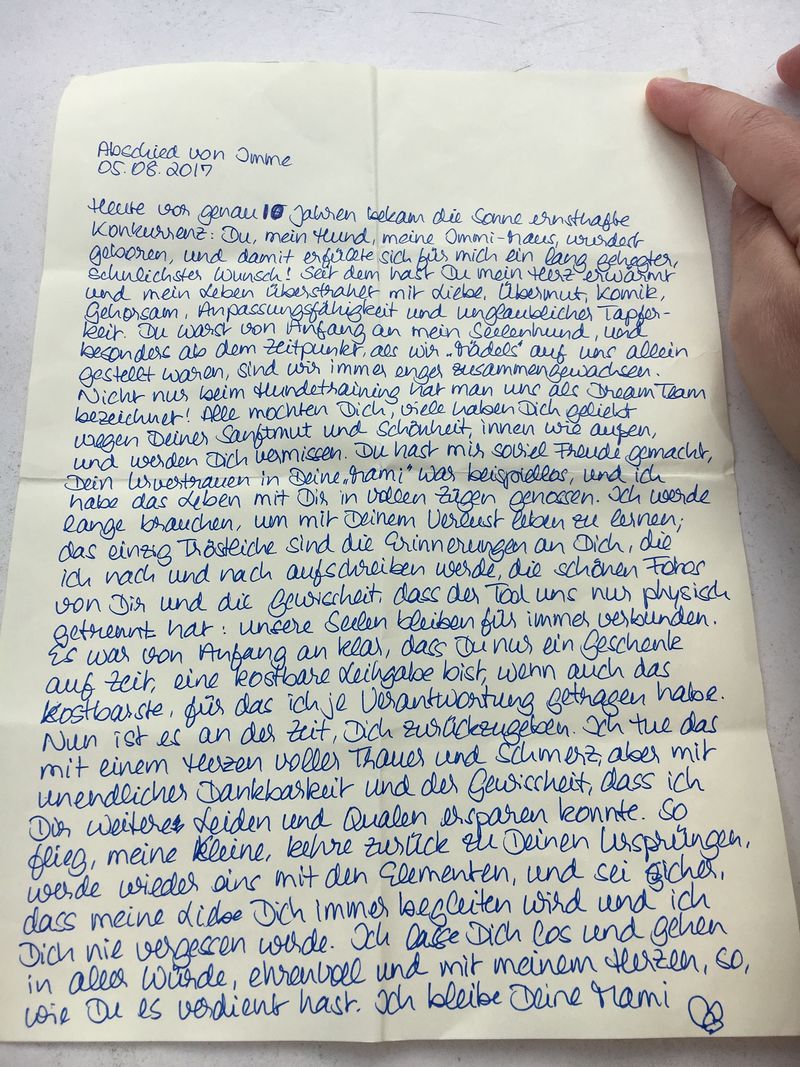 Abschied von Imme
05.08.2017
Heute vor genau 10 Jahren bekam die Sonne ernsthafte
Konkurrenz: Du, mein Hund, meine Immi-Maus, wurdest
geboren, und damit erfüllte sich für mich ein lang gehegter,
sehnlichster Wunsch! Seit dem hast Du mein Herz erwärmt
und mein Leben überstrahlt mit Liebe, Übermut, Komik,
Gehorsam, Anpassungsfähigkeit und unglaublicher Tapfer-
keit. Du warst von Anfang an mein Seelenhund, und
besonders ab dem Zeitpunkt, als wir „Mädels" auf uns allein
gestellt waren, sind wir immer enger zusammengewachsen.
Nicht nur beim Hundetraining hat man uns als Dream Team
bezeichnet! Alle mochten Dich, viele haben Dich geliebt
wegen Deiner Sanftmut und Schönheit, innen wie außen,
und werden Dich vermissen. Du hast mir soviel Freude gemacht,
Dein Urvertrauen in Deine „Mami" war beispiellos, und ich
habe das Leben mit Dir in vollen Zügen genossen. Ich werde
lange brauchen, um mit Deinem Verlust leben zu lernen;
das einzig Tröstliche sind die Erinnerungen an Dich, die
ich nach und nach aufschreiben werde, die schönen Fotos
von Dir und die Gewissheit, dass der Tod uns nur physisch
getrennt hat: unsere Seelen bleiben für immer verbunden.
Es war von Anfang an klar, dass Du nur ein Geschenk
auf Zeit, eine kostbare Leihgabe bist, wenn auch das
Kostbarste, für das ich je Verantwortung getragen habe.
Nun ist es an der Zeit, Dich zurückzugeben. Ich tue das
mit einem Herzen voller Trauer und Schmerz, aber mit
unendlicher Dankbarkeit und der Gewissheit, dass ich
Dir weitere Leiden und Qualen ersparen konnte. So
flieg, meine Kleine, kehre zurück zu Deinen Ursprüngen,
werde wieder eins mit den Elementen, und sei sicher,
dass meine Liebe Dich immer begleiten wird und ich
Dich nie vergessen werde. Ich lasse Dich los und gehen
in aller Würde, ehrenvoll und mit meinem Herzen, so,
wie Du es verdient hast. Ich bleibe Deine Mami